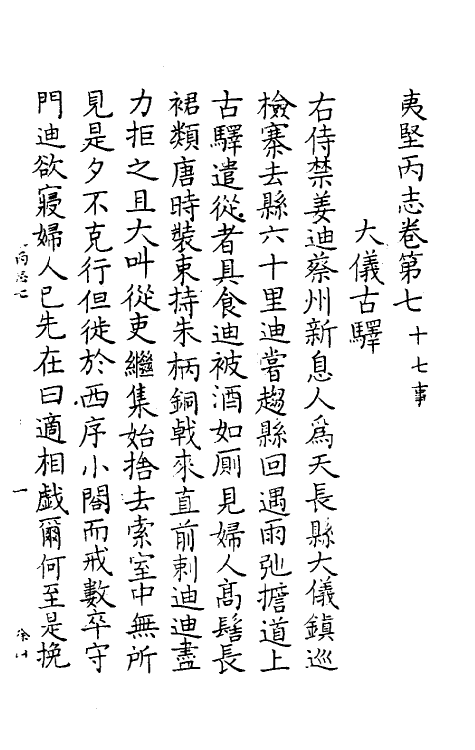 夷堅丙志卷第七 十七事
大儀古驛
右侍禁姜迪蔡州新息人爲天長縣大儀鎮巡
檢寨去縣六十里迪嘗趨縣回遇雨弛擔道上
古驛遣從者具食迪被酒如厠見婦人髙髻長
裙類唐時裝束持朱柄銅戟來直前刺迪迪盡
力拒之且大叫從吏繼集始捨去索室中無所
見是夕不克行但徙於西序小閤而戒數卒守
門迪欲寢婦人已先在曰適相戲爾何至是挽
丙志七
一